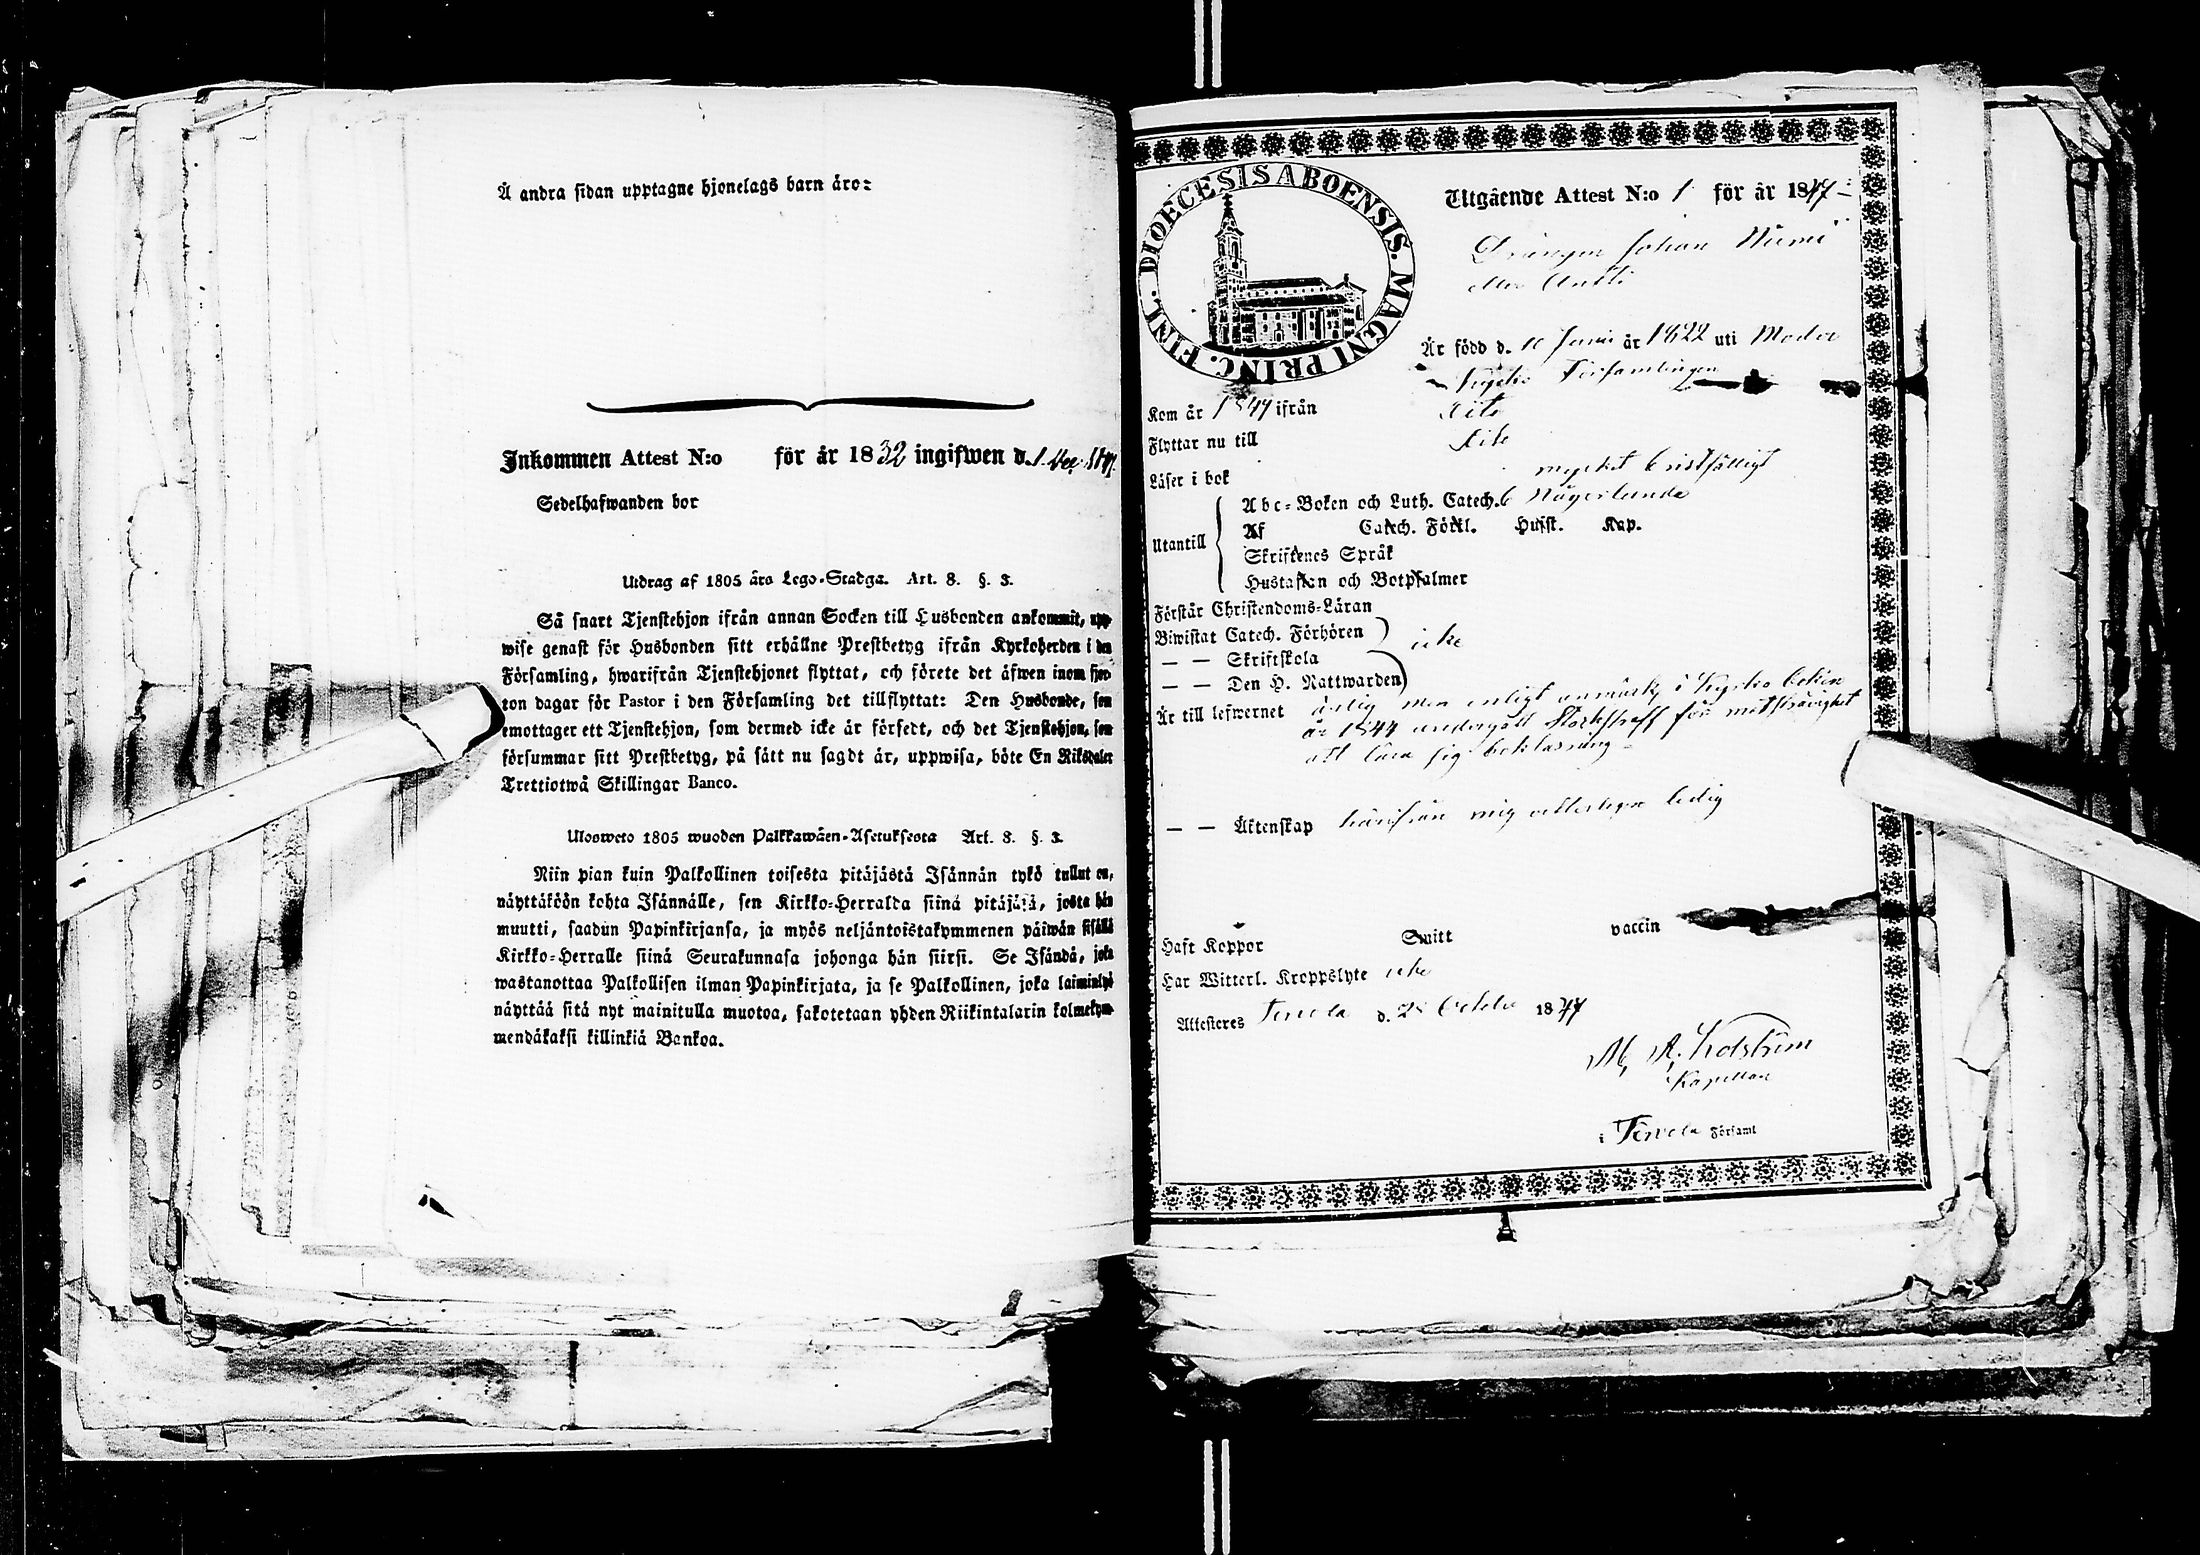 Å andra sidan upptagne hjonelags barn äro:
Inkommen Attest N:o för år 1832 ingifwen d. 1 Dec. 1847.
Sedelhafwanden bor
Utdrag af 1805 års Lego-Stadga. Art. 8. §. 3.
Så snart Tjenstehjon ifrån annan Socken till Husbonden ankommit, upp-
wise genast för Husbonden sitt erhållne Prestbetyg ifrån Kyrkoherden i den
Församling, hwarifrån Tjenstehjonet flyttat, och förete det äfwen inom fjor-
ton dagar för Pastor i den Församling det tillflyttat: Den Husbonde, som
emottager ett Tjenstehjon, som dermed icke är försedt, och det Tjenstehjon, som
försummar sitt Prestbetyg, på sätt nu sagdt är, uppwisa, böte En Riksdaler
Trettiotwå Skillingar Banco.
Ulosweto 1805 wuoden Palkkawäen-Asetuksesta Art. 8. §. 3.
Niin pian kuin Palkollinen toisesta pitäjästä Isännän tykö tullut on,
näyttäköön kohta Isännälle, sen Kirkko-Herralda siinä pitäjäsä, josta hän
muutti, saadun Papinkirjansa, ja myös neljäntoistakymmenen päiwän sisällä
Kirkko-Herralle siinä Seurakunnasa johonga hän siirsi. Se Isändä, joka
wastanottaa Palkollisen ilman Papinkirjata, ja se Palkollinen, joka laiminlyö
näyttää sitä nyt mainitulla muotoa, sakotetaan yhden Riikintalarin kolmekym-
mendäkaksi killinkiä Bankoa.
DIOECESIS ABOENSIS. MAGNI PRINC. FINL.
Utgående Attest N:o 1 för år 1847
Drängen Johan Niemi
eller Antti
Är född d. 10 Junii år 1822 uti Moder
Kyrko Församlingen
Kom år 1847 ifrån dito
Flyttar nu till dito
Läser i bok mycket bristfälligt
Utantill
Abc-Boken och Luth. Catech. någorlunda
Af Catech. Förkl. Husst. Kap.
Skriftenes Språk
Hustaflan och Botpsalmer
Förstår Christendoms-Läran
Biwistat Catech. Förhören
— — Skriftskola icke
— — Den H. Nattwarden
Är till lefwernet ärlig men enligt anmärkn. i Kyrko boken
år 1844 undergått Stockstraff för motsträfvighet
att lära sig bokläsning
— — Äktenskap härifrån mig vetterligen ledig
Haft Koppor Smitt vaccin
Har Witterl. Kroppslyte icke
Attesteres Tervola d. 28 Octob. 1847
Kapellan
i Tervola Församl